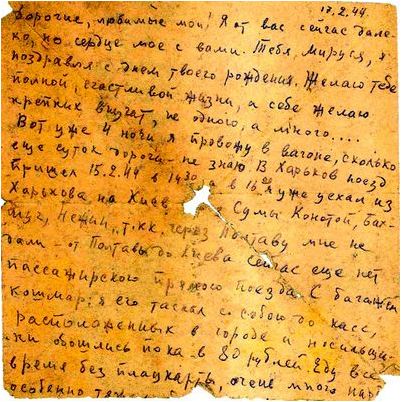 17.2.44.
Дорогие, любимые мои! Я от вас сейчас дале-
ко, но сердце мое с вами. Тебя, Мируся, я
поздравля с днем твоего рождения. Желаю тебе
полной, счастливой жизни, а себе желаю
крепких внучат, не одного, а много....
Вот уже 4 ночи я провожу в вагоне, сколько
еще суток дороги - не знаю. В Харьков поезд
пришел 15.2.44 в 1430, а в 16 я уже уехал из
Харькова на Киев Сумы, Конотоп, Бах-
мач, Нежин, т.к. через Полтаву мне не
дали от Полтавы до Киева сейчас еще нет
пассажирского прямого поезда. С багажем
кошмар: я его таскал с собою до касс,
расположенных в городе и носильщи-
ки обошлись пока в 80 рублей. Еду все
время без плацкарты, очень много нар
особенно